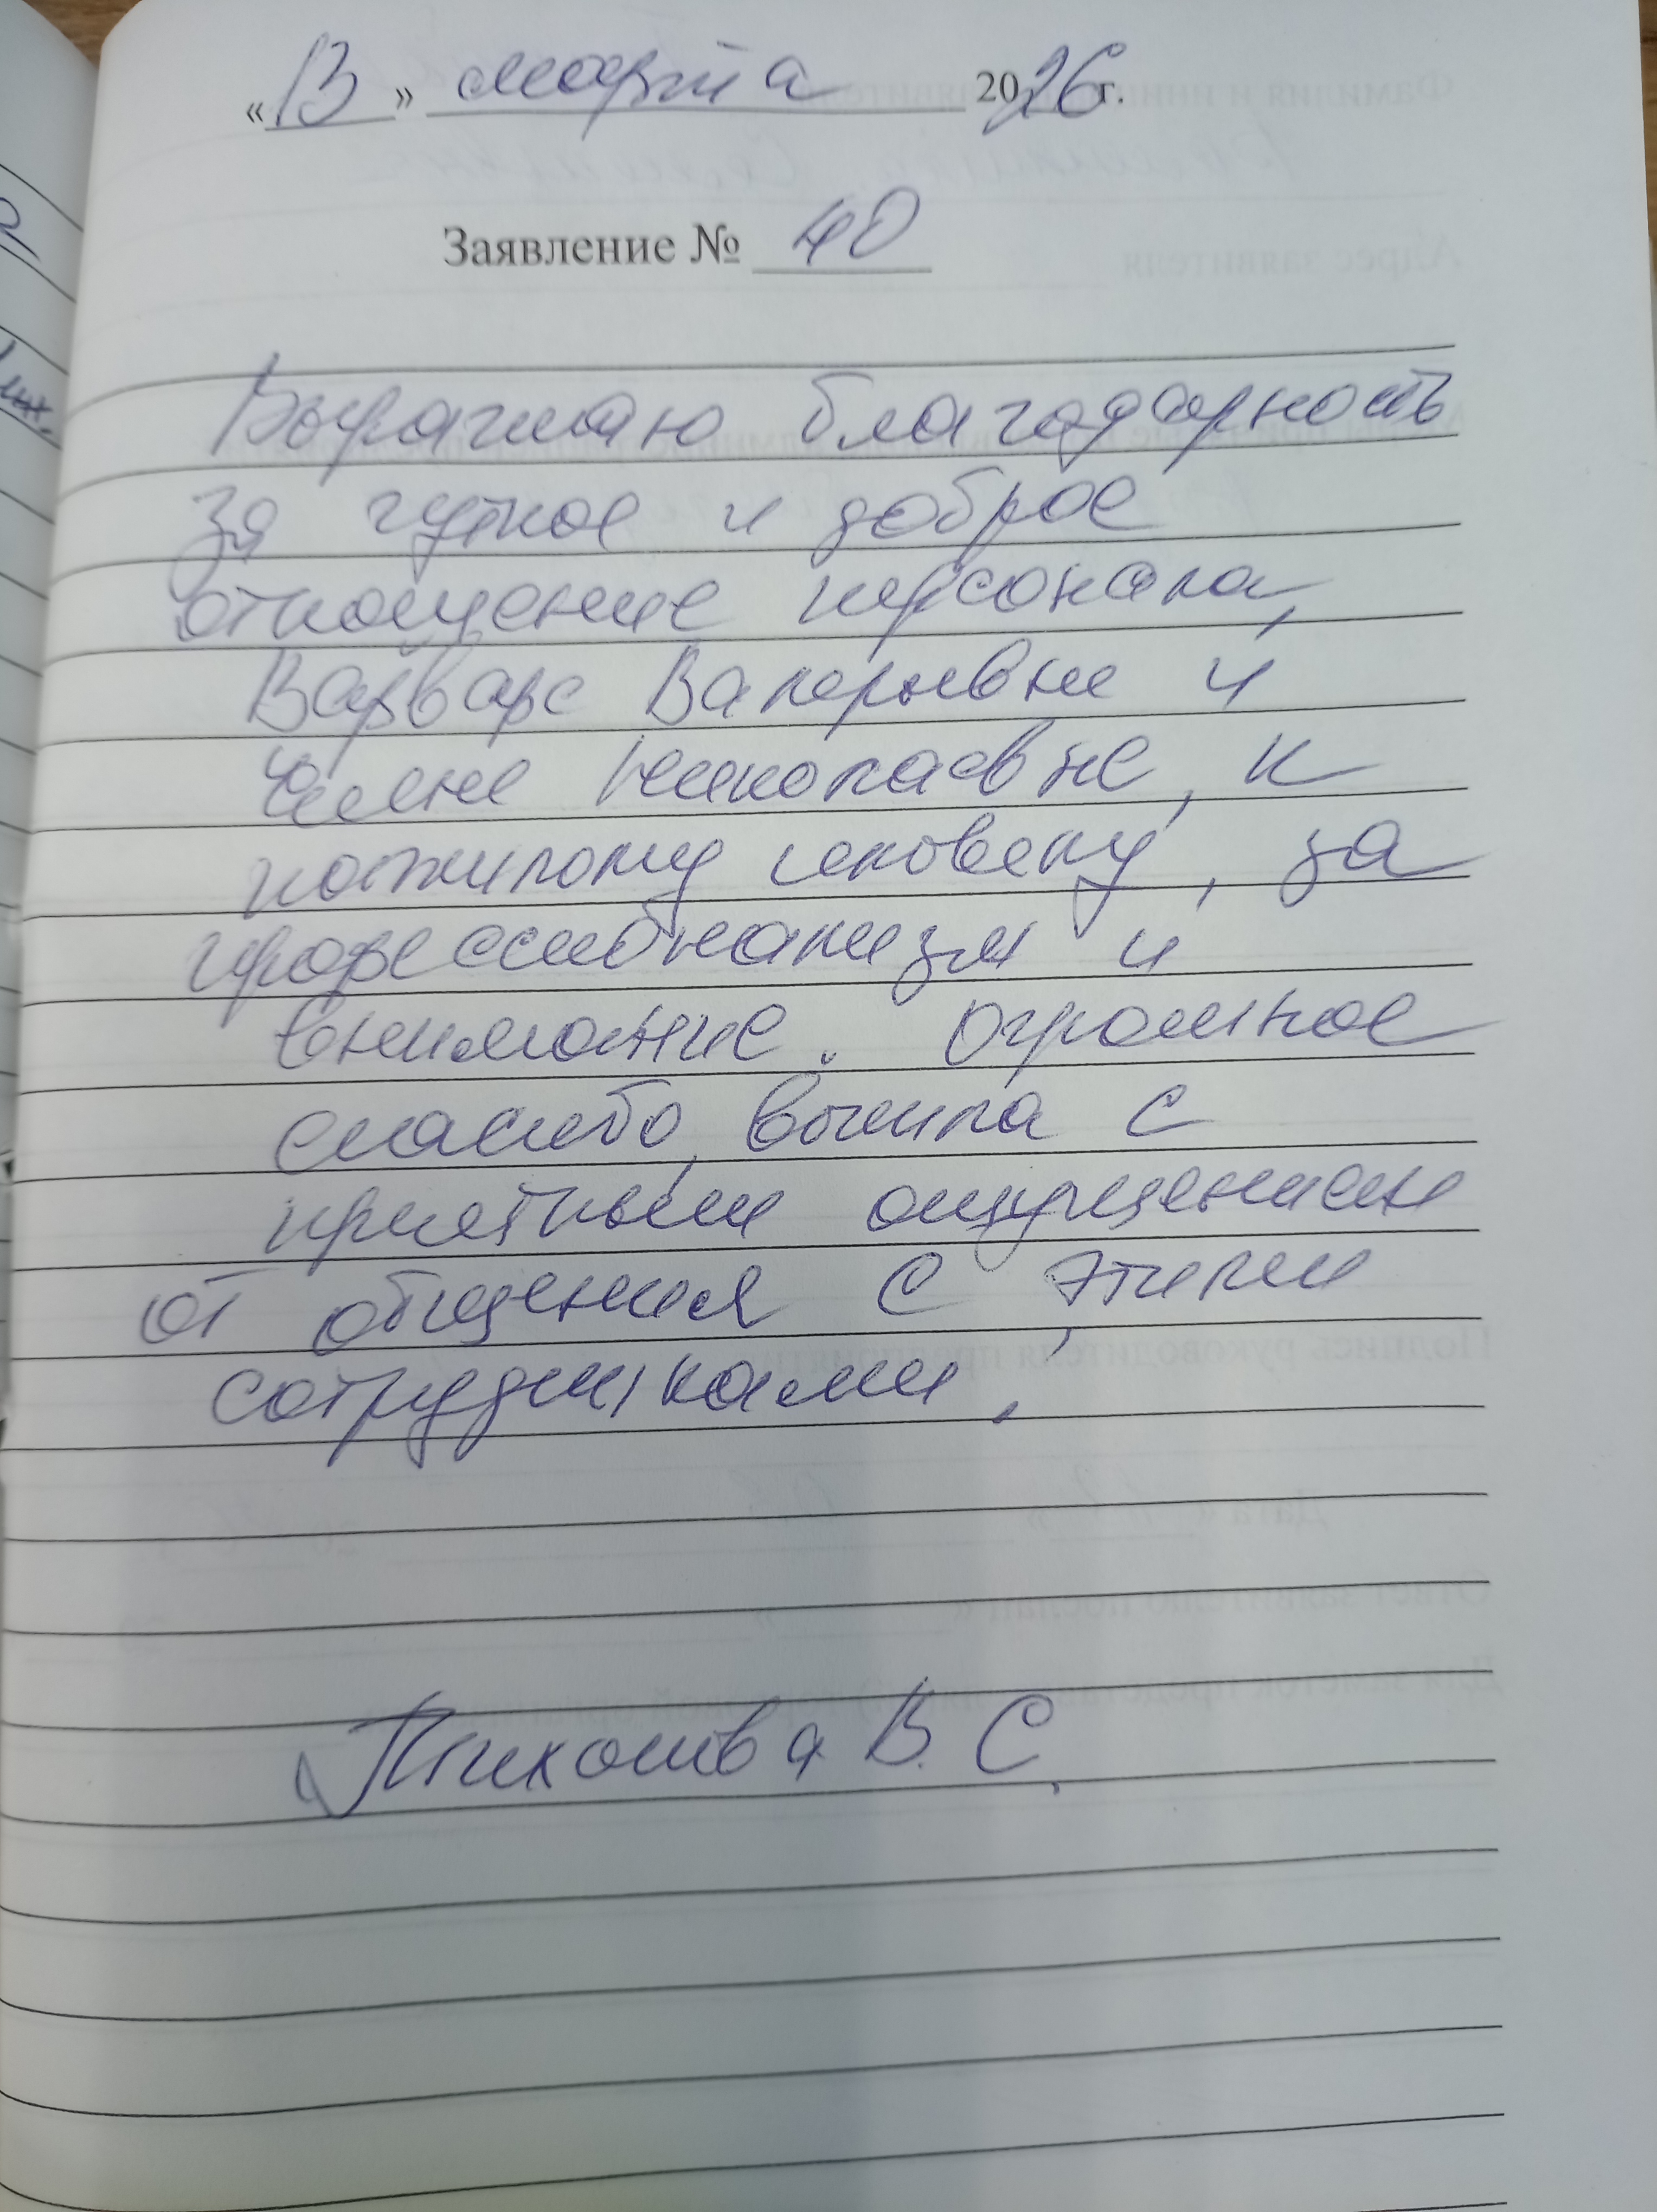 «13» марта 2026 г.
Заявление № 40
Выражаю благодарность
за чуткое и доброе
отношение персонала,
Варваре Валерьевне и
Елене Николаевне, к
пожилому человеку, за
профессионализм и
внимание. Огромное
спасибо, вышла с
приятным ощущением
от общения с этими
сотрудниками.
Тихонова В. С.